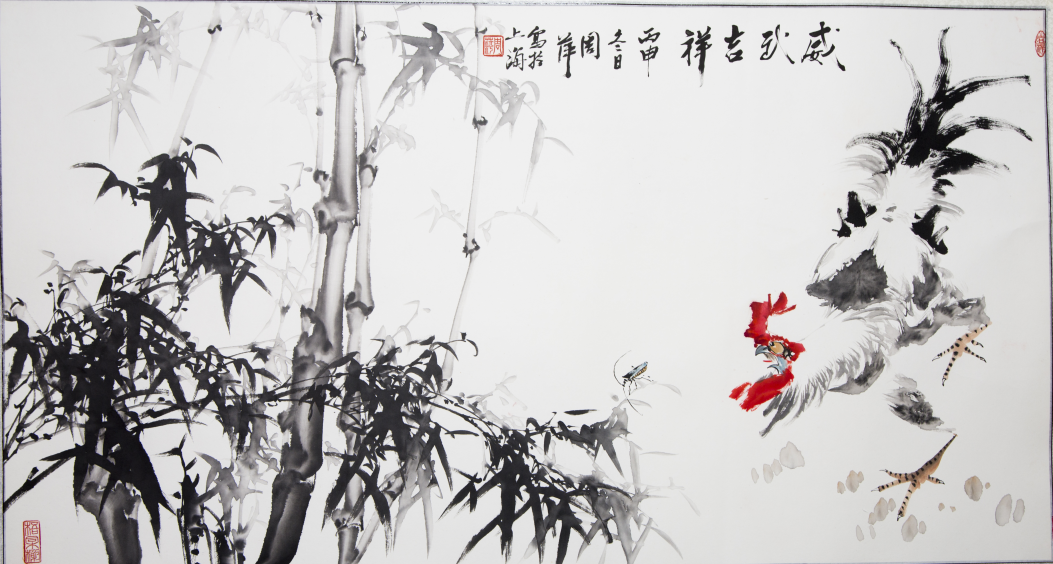 威武吉祥
丙申
冬日
周
寫於
上海